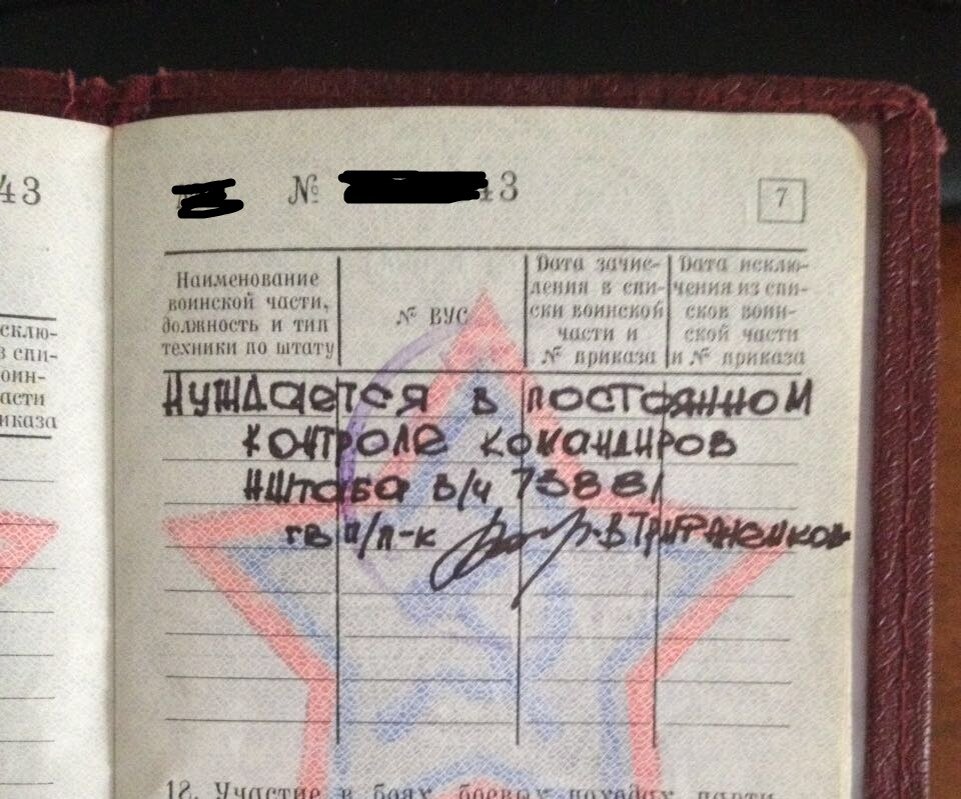 43
№ 43
7
склю-
з спи-
оин-
асти
иказа
Наименование
воинской части,
должность и тип
техники по штату
№ ВУС
Дата зачис-
ления в спи-
ски воинской
части и
№ приказа
Дата исклю-
чения из спи-
сков воин-
ской части
и № приказа
Нуждается в постоянном
контроле командиров
и штаба в/ч 73881
гв п/п-к
12. Участие в боях, боевых походах, парти-